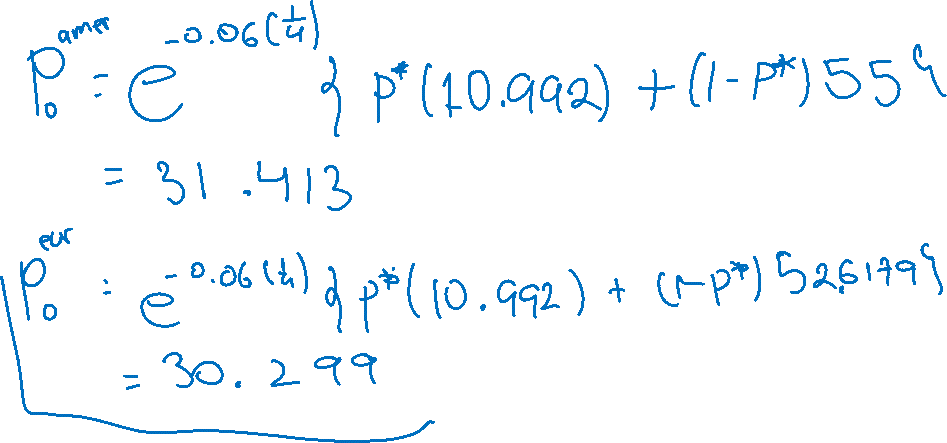 P₀^amer = e^{-0.06(1/4)} { p*(10.992) + (1-p*)55 }
= 31.413
P₀^eur = e^{-0.06(1/4)} { p*(10.992) + (1-p*) 52.6179 }
= 30.299